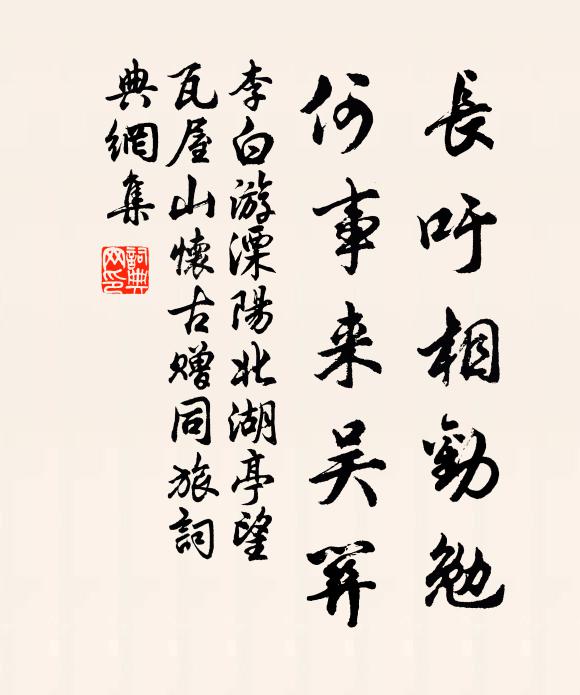 長吁相勸勉
何事来吴關
李白游溧陽北湖亭望
瓦屋山懷古赠同旅詞
典網集
詞典
网印